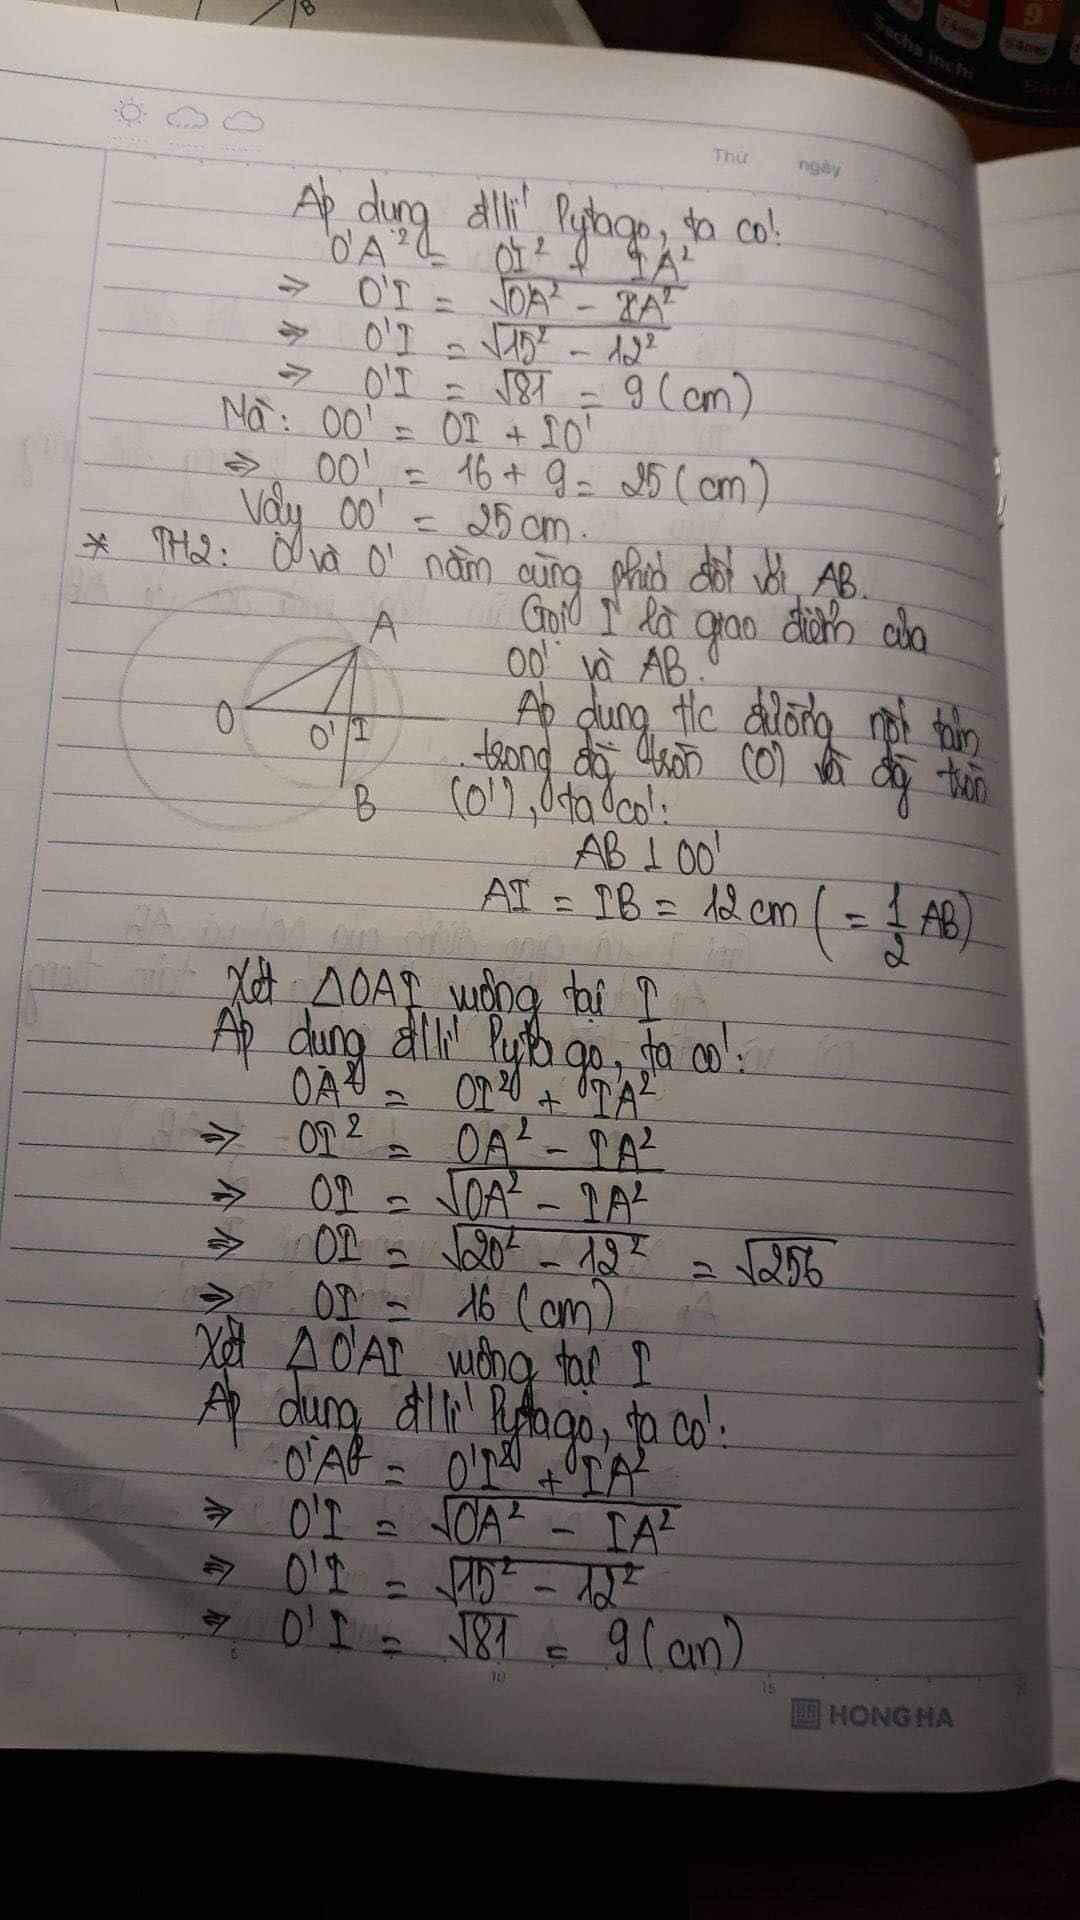 B
9
Sacha inchi
Thứ ngày
Áp dụng đ/lí Pytago, ta có:
O'A² = OI² + IA²
⇒ O'I = √OA² - IA²
⇒ O'I = √15² - 12²
⇒ O'I = √81 = 9 (cm)
Mà: OO' = OI + IO'
⇒ OO' = 16 + 9 = 25 (cm)
Vậy OO' = 25 cm.
* TH2: O và O' nằm cùng phía đối với AB.
Gọi I là giao điểm của
OO' và AB.
Áp dụng t/c đường nối tâm
trong đg tròn (O) và đg tròn
(O'), ta có:
A
O
O'
I
B
AB ⊥ OO'
AI = IB = 12 cm (= 1/2 AB)
Xét △OAI vuông tại I
Áp dụng đ/lí Pytago, ta có:
OA² = OI² + IA²
⇒ OI² = OA² - IA²
⇒ OI = √OA² - IA²
⇒ OI = √20² - 12² = √256
⇒ OI = 16 (cm)
Xét △O'AI vuông tại I
Áp dụng đ/lí Pytago, ta có:
O'A² = O'I² + IA²
⇒ O'I = √OA² - IA²
⇒ O'I = √15² - 12²
⇒ O'I = √81 = 9 (cm)
10 15
HONG HA